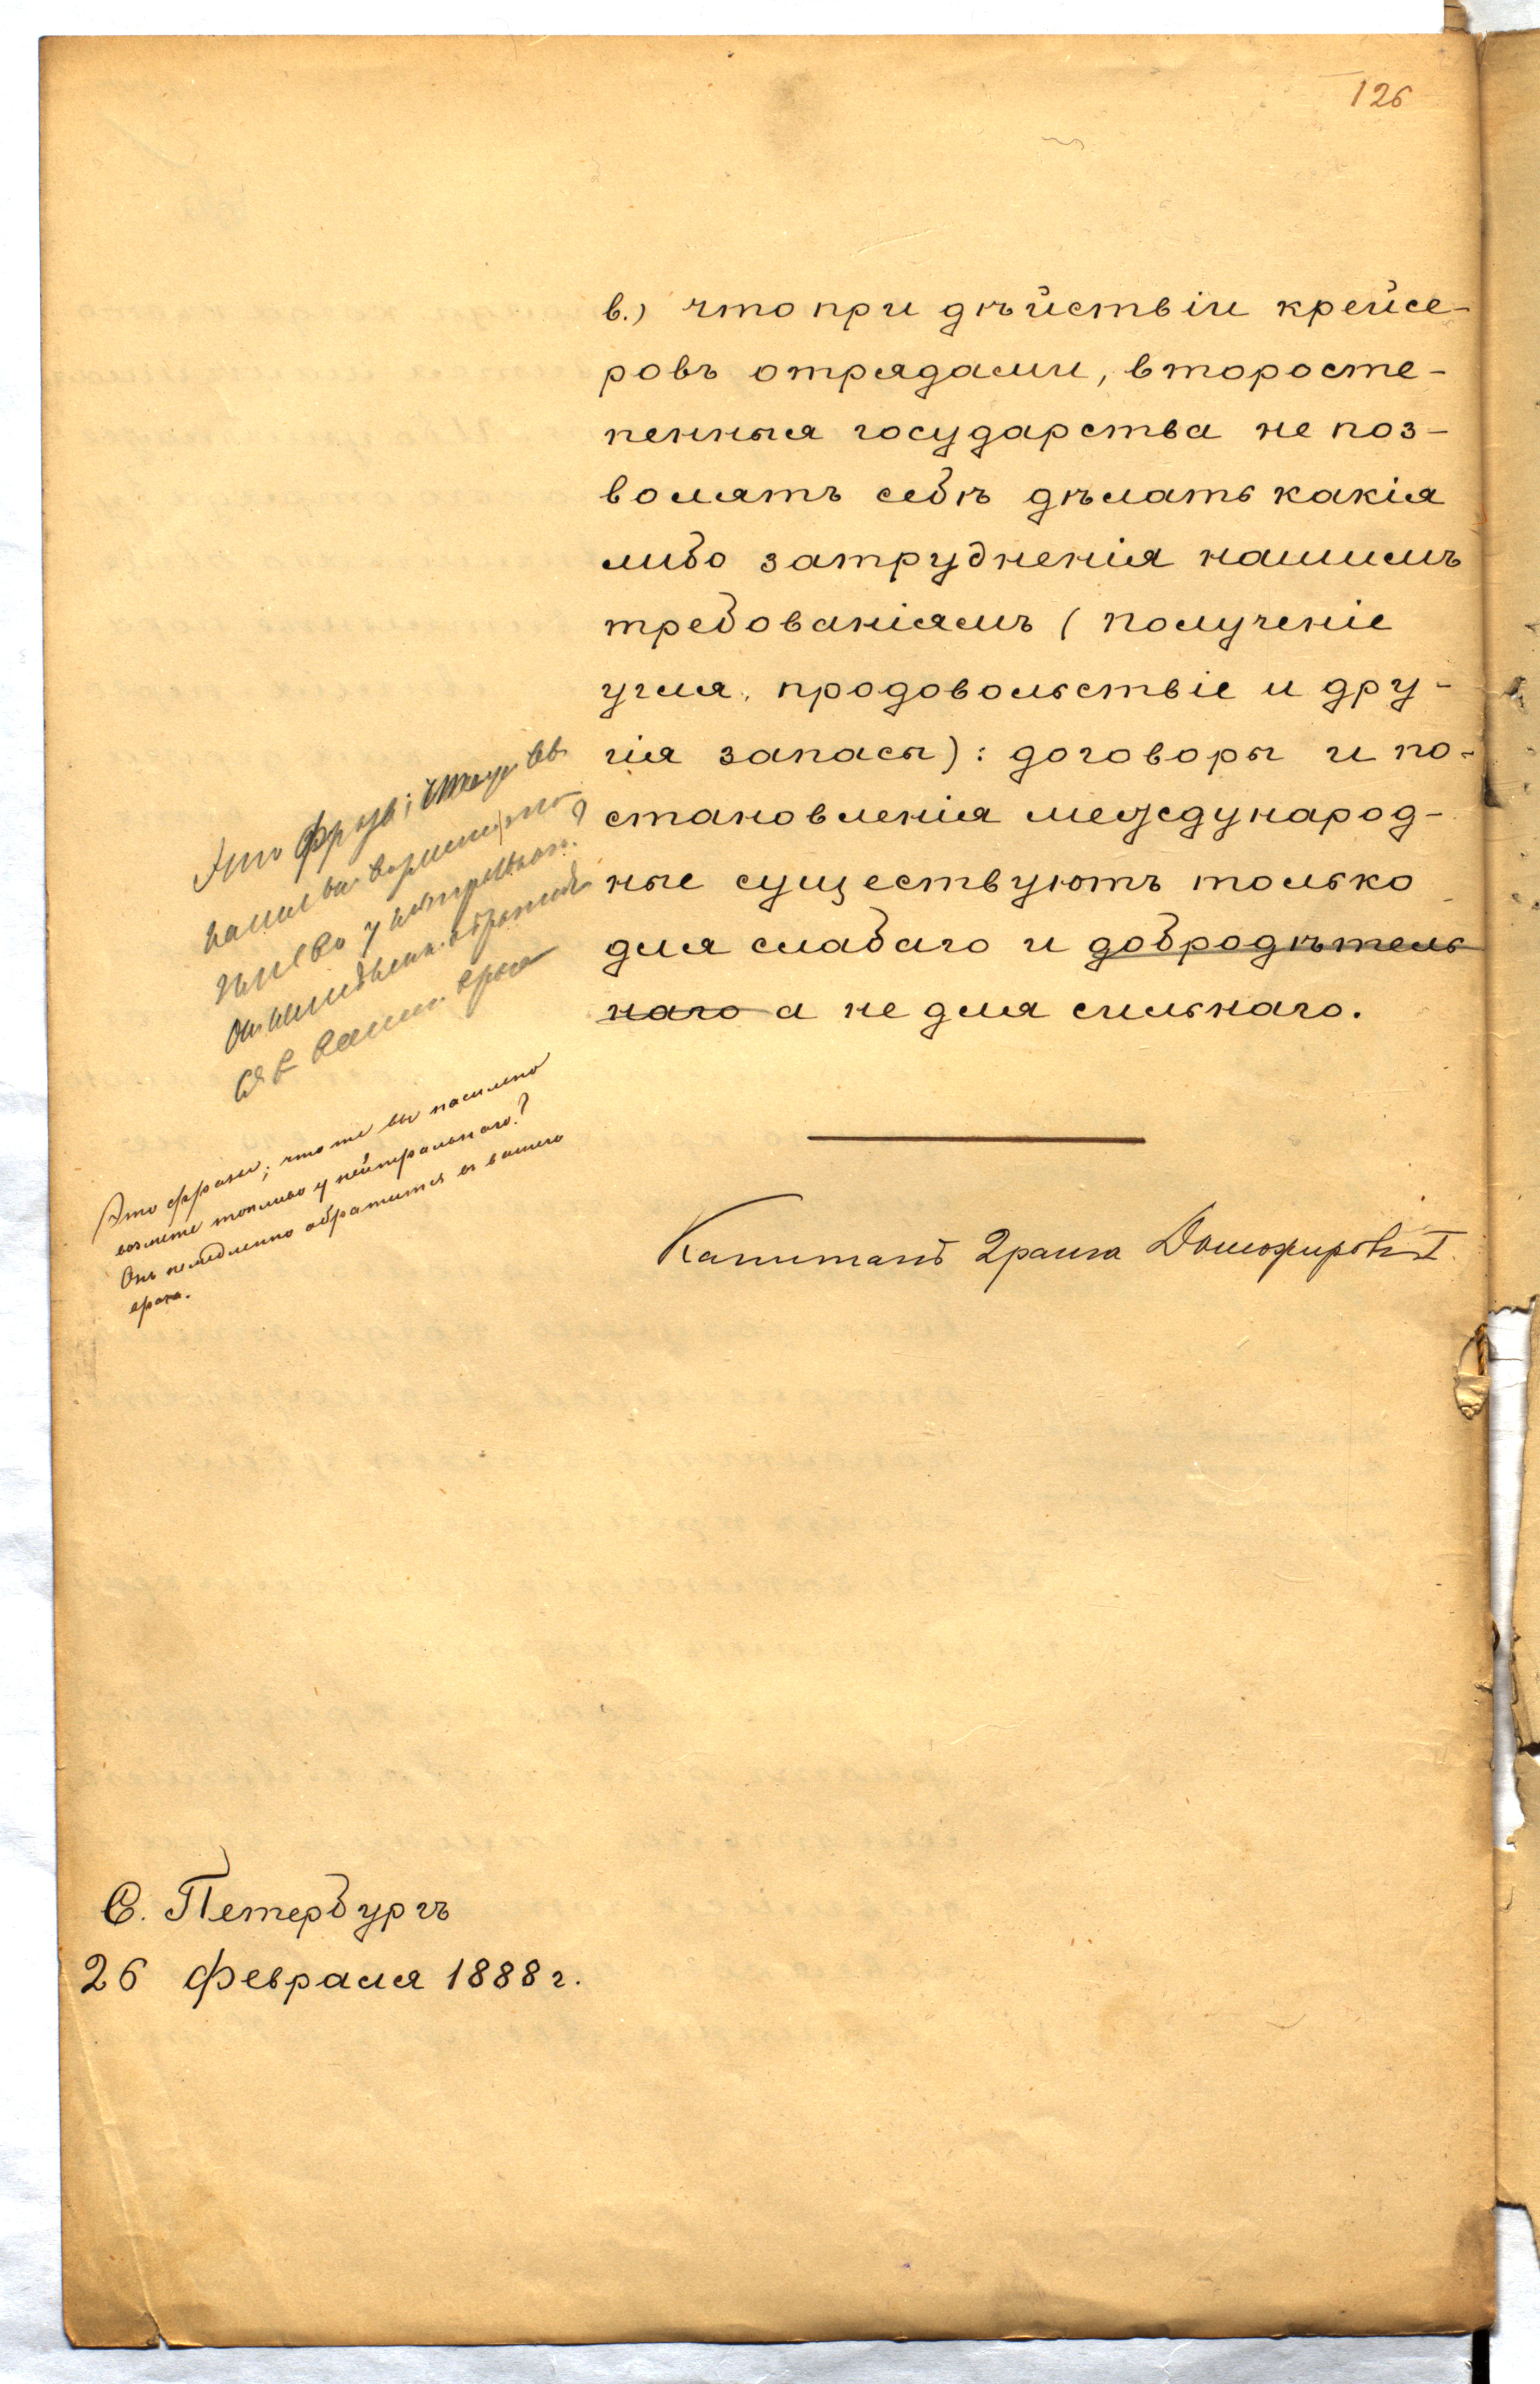 126
в.) что при дѣйствіи крейсе-
ровъ отрядами, второсте-
пенныя государства не поз-
волятъ себѣ дѣлать какія
либо затрудненія нашимъ
требованіямъ (полученіе
угля, продовольствіе и дру-
гія запасы): договоры и по-
становленія международ-
ные существуютъ только
для слабаго и добродѣтель
наго а не для сильнаго.
Это фразы; что же вы
насильно возьмете, то-
пливо у нейтральн.?
Онъ немедленно обратит
ся въ ваше врага
Это фразы; что же вы насильно
возьмете топливо у нейтральнаго?
Онъ немедленно обратится въ вашего
врага.
Капитанъ 2 ранга Доможировъ I.
С. Петербургъ
26 февраля 1888 г.